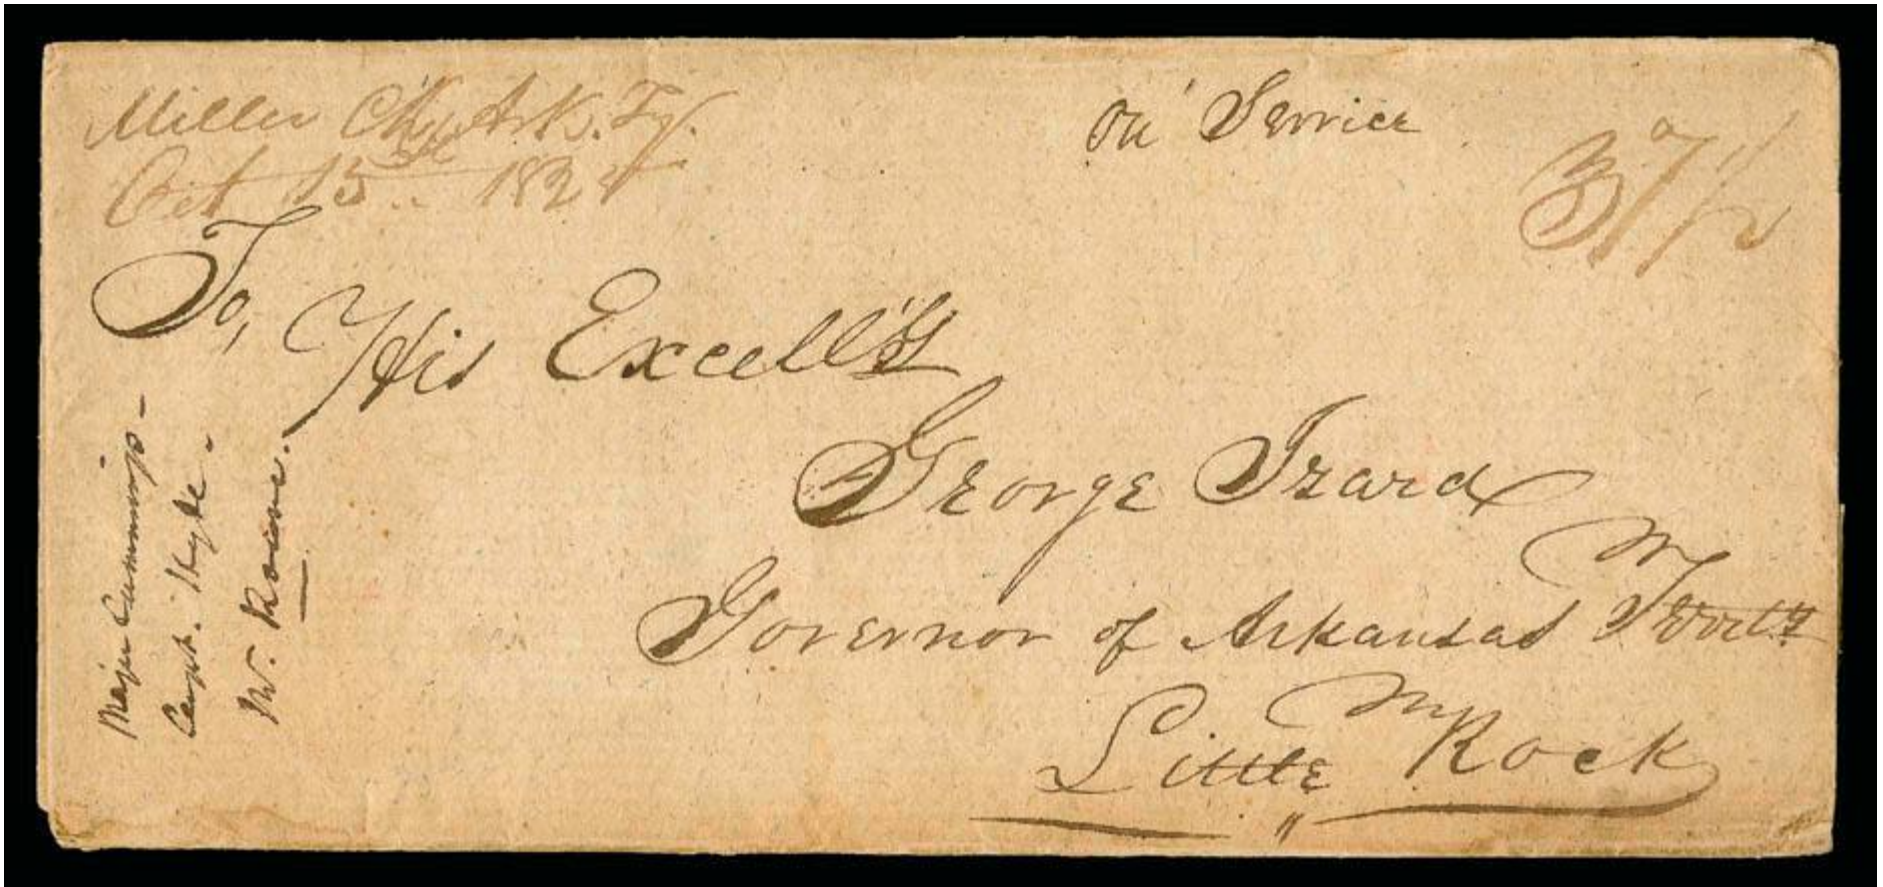 Miller Cty Ark. Ty.
Oct 15th 182
on Service
37 1/2
To,
His Excell'y
George Izard
Governor of Arkansas Territ'y
Little Rock
Major Cummings -
Capt. Hyde -